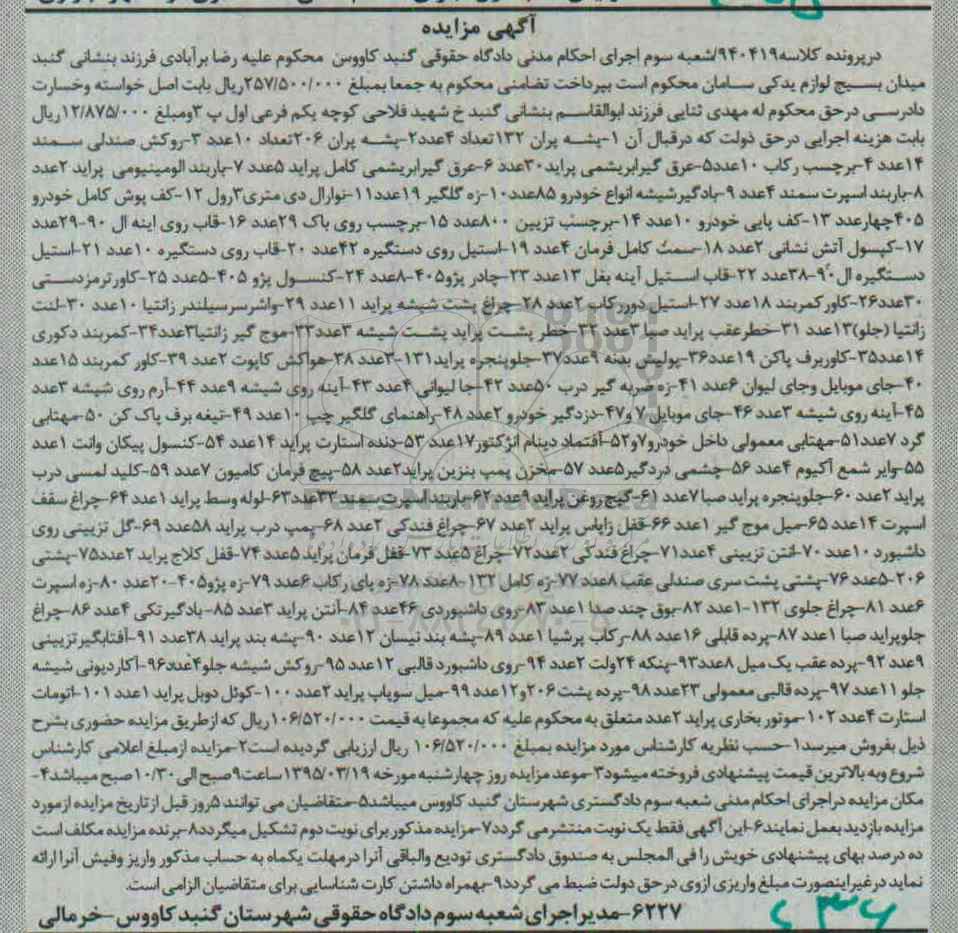 آگهی مزایده
درپرونده کلاسه۹۴۰۴۱۹/شعبه سوم اجرای احکام مدنی دادگاه حقوقی گنبد کاووس محکوم علیه رضا برآبادی فرزند بنشانی گنبد
میدان بسیج لوازم یدکی سامان محکوم است بپرداخت تضامنی محکوم به جمعا بمبلغ ۲۵۷/۵۰۰/۰۰۰ریال بابت اصل خواسته وخسارت
دادرسی درحق محکوم له مهدی ثنایی فرزند ابوالقاسم بنشانی گنبد خ شهید فلاحی کوچه یکم فرعی اول پ ۳ومبلغ ۱۲/۸۷۵/۰۰۰ریال
بابت هزینه اجرایی درحق دولت که درقبال آن ۱-پشه پران ۱۳۲تعداد ۴عدد۲-پشه پران ۲۰۶تعداد ۱۰عدد ۳-روکش صندلی سمند
۱۴عدد ۴-برچسب رکاب ۱۰عدد۵-عرق گیرابریشمی پراید۳۰عدد ۶-عرق گیرابریشمی کامل پراید ۵عدد ۷-باربند الومینیومی پراید ۲عدد
۸-باربند اسپرت سمند ۴عدد ۹-بادگیرشیشه انواع خودرو ۸۵عدد۱۰-زه گلگیر ۱۹عدد۱۱-نوارال دی متری۳رول ۱۲-کف پوش کامل خودرو
۴۰۵چهارعدد ۱۳-کف پایی خودرو ۱۰عدد ۱۴-برچسب تزیین ۸۰۰عدد ۱۵-برچسب روی باک ۲۹عدد ۱۶-قاب روی اینه ال ۹۰-۲۹عدد
۱۷-کپسول آتش نشانی ۲عدد ۱۸-سمت کامل فرمان ۴عدد ۱۹-استیل روی دستگیره ۴۲عدد ۲۰-قاب روی دستگیره ۱۰عدد ۲۱-استیل
دستگیره ال ۹۰-۳۸عدد ۲۲-قاب استیل آینه بغل ۱۳عدد ۲۳-چادر پژو۴۰۵-۸عدد ۲۴-کنسول پژو ۴۰۵-۵عدد ۲۵-کاورترمزدستی
۳۰عدد۲۶-کاورکمربند ۱۸عدد ۲۷-استیل دوررکاب ۲عدد ۲۸-چراغ پشت شیشه پراید ۱۱عدد ۲۹-واشرسرسیلندر زانتیا ۱۰عدد ۳۰-لنت
زانتیا (جلو)۱۳عدد ۳۱-خطرعقب پراید صبا ۳عدد ۳۲-خطر پشت پراید پشت شیشه ۳عدد۳۳-موج گیر زانتیا۳عدد۳۴-کمربند دکوری
۱۴عدد۳۵-کاوربرف پاکن ۱۹عدد۳۶-پولیش بدنه ۹عدد۳۷-جلوپنجره پراید۱۳۱-۳عدد ۳۸-هواکش کاپوت ۲عدد ۳۹-کاور کمربند ۱۵عدد
۴۰-جای موبایل وجای لیوان ۶عدد ۴۱-زه ضربه گیر درب ۵۰عدد ۴۲-جا لیوانی ۴عدد ۴۳-آینه روی شیشه ۹عدد ۴۴-آرم روی شیشه ۳عدد
۴۵-آینه روی شیشه ۳عدد ۴۶-جای موبایل ۷ و۴۷-دزدگیر خودرو ۲عدد ۴۸-راهنمای گلگیر چپ ۱۰عدد ۴۹-تیغه برف پاک کن ۵۰-مهتابی
گرد ۷عدد۵۱-مهتابی معمولی داخل خودرو۷و۵۲-آفتمات دینام انژکتور۱۷عدد ۵۳-دنده استارت پراید ۱۴عدد ۵۴-کنسول پیکان وانت ۱عدد
۵۵-وایر شمع آکیوم ۴عدد ۵۶-چشمی دزدگیر۵عدد ۵۷-مخزن پمپ بنزین پراید۲عدد ۵۸-پیچ فرمان کامیون ۷عدد ۵۹-کلید لمسی درب
پراید ۲عدد ۶۰-جلوپنجره پراید صبا ۷عدد ۶۱-گیج روغن پراید ۹عدد ۶۲-باربنداسپرت سمند ۳۳عدد۶۳-لوله وسط پراید ۱عدد ۶۴-چراغ سقف
اسپرت ۱۴عدد ۶۵-میل موج گیر ۱عدد ۶۶-قفل زاپاس پراید ۲عدد ۶۷-چراغ فندکی ۲عدد ۶۸-پمپ درب پراید ۵۸عدد ۶۹-گل تزیینی روی
داشبورد ۱۰عدد ۷۰-انتن تزیینی ۴عدد۷۱-چراغ فندکی ۲عدد۷۲-چراغ ۵عدد ۷۳-قفل فرمان پراید ۵عدد ۷۴-قفل کلاج پراید ۲عدد۷۵-پشتی
۲۰۶-۵عدد ۷۶-پشتی پشت سری صندلی عقب ۸عدد ۷۷-زه کامل ۱۳۲-۸عدد ۷۸-زه پای رکاب ۶عدد ۷۹-زه پژو۴۰۵-۲۰عدد ۸۰-زه اسپرت
۶عدد ۸۱-چراغ جلوی ۱۳۲-۱عدد ۸۲-بوق چند صدا ۱عدد ۸۳-روی داشبوردی ۴۶عدد ۸۴-آنتن پراید ۳عدد ۸۵-بادگیرتکی ۴عدد ۸۶-چراغ
جلوپراید صبا ۱عدد ۸۷-پرده قابلی ۱۶عدد ۸۸-رکاب پرشیا ۱عدد ۸۹-پشه بند نیسان ۱۲عدد ۹۰-پشه بند پراید ۳۸عدد ۹۱-آفتابگیرتزیینی
۹عدد ۹۲-پرده عقب یک میل ۸عدد۹۳-پنکه ۲۴ولت ۲عدد ۹۴-روی داشبورد قالبی ۱۲عدد ۹۵-روکش شیشه جلو۴عدد۹۶-آکاردیونی شیشه
جلو ۱۱عدد ۹۷-پرده قالبی معمولی ۲۳عدد ۹۸-پرده پشت ۲۰۶و۱۲عدد ۹۹-میل سوپاپ پراید ۲عدد ۱۰۰-کوئل دوبل پراید ۱عدد ۱۰۱-اتومات
استارت ۴عدد ۱۰۲-موتور بخاری پراید ۲عدد متعلق به محکوم علیه که مجموعا به قیمت ۱۰۶/۵۲۰/۰۰۰ریال که ازطریق مزایده حضوری بشرح
ذیل بفروش میرسد۱-حسب نظریه کارشناس مورد مزایده بمبلغ ۱۰۶/۵۲۰/۰۰۰ ریال ارزیابی گردیده است۲-مزایده ازمبلغ اعلامی کارشناس
شروع وبه بالاترین قیمت پیشنهادی فروخته میشود۳-موعد مزایده روز چهارشنبه مورخه ۱۳۹۵/۰۳/۱۹ساعت۹صبح الی ۱۰/۳۰صبح میباشد۴-
مکان مزایده دراجرای احکام مدنی شعبه سوم دادگستری شهرستان گنبد کاووس میباشد۵-متقاضیان می توانند ۵روز قبل ازتاریخ مزایده ازمورد
مزایده بازدید بعمل نمایند۶-این آگهی فقط یک نوبت منتشرمی گردد۷-مزایده مذکور برای نوبت دوم تشکیل میگردد۸-برنده مزایده مکلف است
ده درصد بهای پیشنهادی خویش را فی المجلس به صندوق دادگستری تودیع والباقی آنرا درمهلت یکماه به حساب مذکور واریز وفیش آنرا ارائه
نماید درغیراینصورت مبلغ واریزی ازوی درحق دولت ضبط می گردد۹-بهمراه داشتن کارت شناسایی برای متقاضیان الزامی است.
۶۲۲۷-مدیراجرای شعبه سوم دادگاه حقوقی شهرستان گنبد کاووس-خرمالی